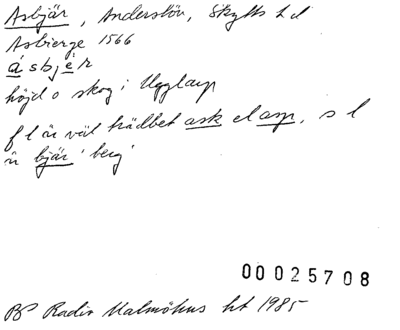 Asbjär, Anderslöv, Skytts hd
Asbierge 1566
ásbjèr
höjd o skog i Ugglarp
f l är väl trädbet ask el asp, s l
är bjär 'berg'
00025708
BP Radio Malmöhus ht 1985